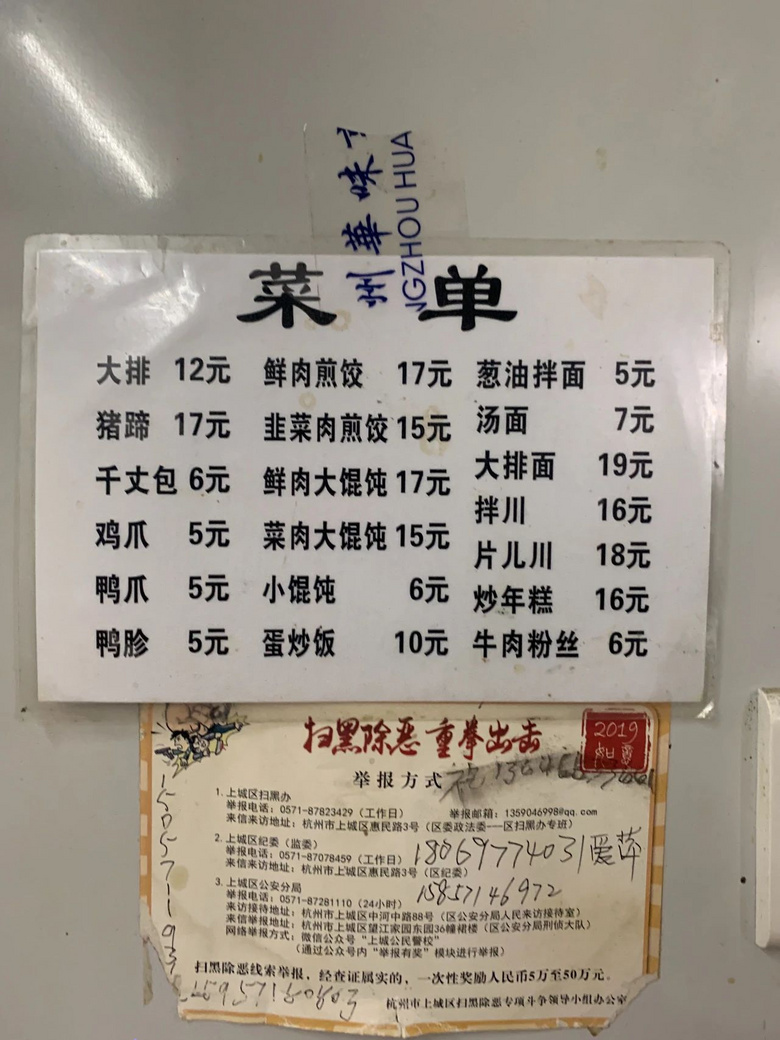 州華味
NGZHOU HUA
菜单
大排 12元
猪蹄 17元
千丈包 6元
鸡爪 5元
鸭爪 5元
鸭胗 5元
鲜肉煎饺 17元
韭菜肉煎饺 15元
鲜肉大馄饨 17元
菜肉大馄饨 15元
小馄饨 6元
蛋炒饭 10元
葱油拌面 5元
汤面 7元
大排面 19元
拌川 16元
片儿川 18元
炒年糕 16元
牛肉粉丝 6元
扫黑除恶 重拳出击
2019
举报方式
1. 上城区扫黑办
举报电话：0571-87823429（工作日） 举报邮箱：1359046998@qq.com
来信来访地址：杭州市上城区惠民路3号（区委政法委---区扫黑办专班）
2. 上城区纪委（监委）
举报电话：0571-87078459（工作日）
来信来访地址：杭州市上城区惠民路3号（区纪委）
18069774031
3. 上城区公安分局
举报电话：0571-87281110（24小时）
15857146972
来访接待地址：杭州市上城区中河中路88号（区公安分局人民来访接待室）
来信举报地址：杭州市上城区望江家园东园36幢裙楼（区公安分局刑侦大队）
网络举报方式：微信公众号“上城公民警校”
（通过公众号内“举报有奖”模块进行举报）
扫黑除恶线索举报，经查证属实的，一次性奖励人民币5万至50万元。
杭州市上城区扫黑除恶专项斗争领导小组办公室